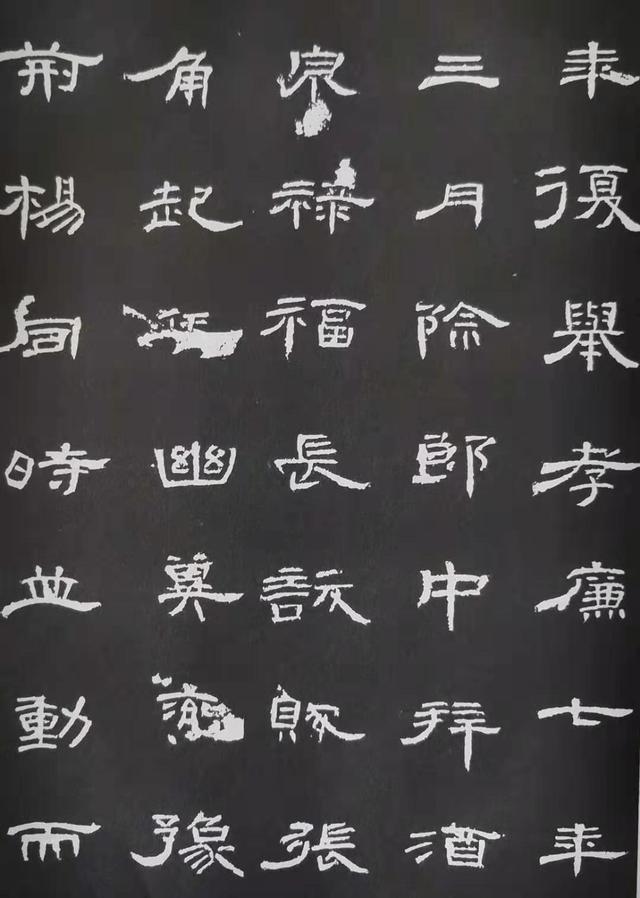 年復舉孝廉七年
三月除郎中拜酒
泉祿福長訞賊張
角起兵幽冀兗豫
荊楊同時並動而